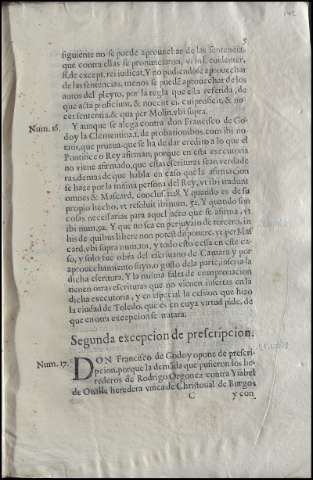 5
siguiente no se puede aprouechar de las sentencias,
que contra ellas se pronunciaron, vt in l. consenter.
ff. de except. rei iudicat. Y no pudiendose aprouechar
de las sentencias, menos se puede aprouechar de los
autos del pleyto, por la regla que està referida, de
que acta prosiciunt, & nocent ei, cui prodest, & no
cet sententia, & qua per Molin. vbi supra.
Num. 16. Y aunque se alega contra don Francisco de Go-
doy la Clementina 1. de probationibus, con sus no-
tas, que prueua que se ha de dar credito a lo que el
Pontifice o Rey afirman, porque en esta executoria
no viene afirmado, que estas escrituras sean verdade
ras, demas de que habla en caso que la afirmacion
se haze por la misma persona del Rey, vt ibi tradunt
omnes & Mascard. conclus. 228. Y quando es de su
proprio hecho, vt resoluit ibi num. 32. Y quando son
cosas necessarias para aquel acto que se afirma, vt
ibi num. 92. Y que no sea en perjuyzio de tercero, in
his de quibus libere non potest disponere, vt per Mas
card. vbi supra num. 101, y todo esto cessa en este ca-
so, y solo fue obra del escriuano de Camara y por
aprouechamiento suyo, o gusto de la parte, inserta la
dicha escritura. Y la misma falta de comprouacion
tienen otras escrituras que no vienen insertas en la
dicha executoria, y en especial la cession que hizo
la ciudad de Toledo, que es en cuya virtud pide, de
que en otra excepcion se tratara.
Segunda excepcion de prescripcion.
Num. 17. DON Francisco de Godoy opone de prescri-
pcion, porque la demanda que pusieron los he-
rederos de Rodrigo Orgonez contra Ysabel
de Oualle heredera vnica de Christoual de Burgos
C y con